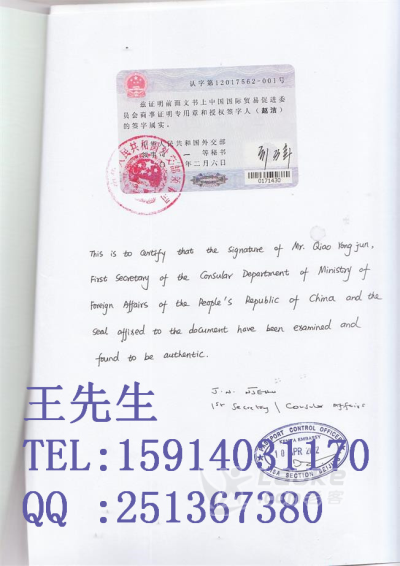 认字第12017562-001号
兹证明前面文书上中国国际贸易促进委
员会商事证明专用章和授权签字人（赵洁）
的签字属实。
民共和国外交部
一等秘书
年二月六日
0171430
This is to certify that the signature of Mr. Qiao Yongjun,
First Secretary of the Consular Department of Ministry of
Foreign Affairs of the People's Republic of China and the
seal affixed to the document have been examined and
found to be authentic.
1st Secretary | Consular affairs
王先生
TEL:15914031170
QQ :251367380
PASSPORT CONTROL OFFICER
KENYA EMBASSY
APR
VISA SECTION BEIJING